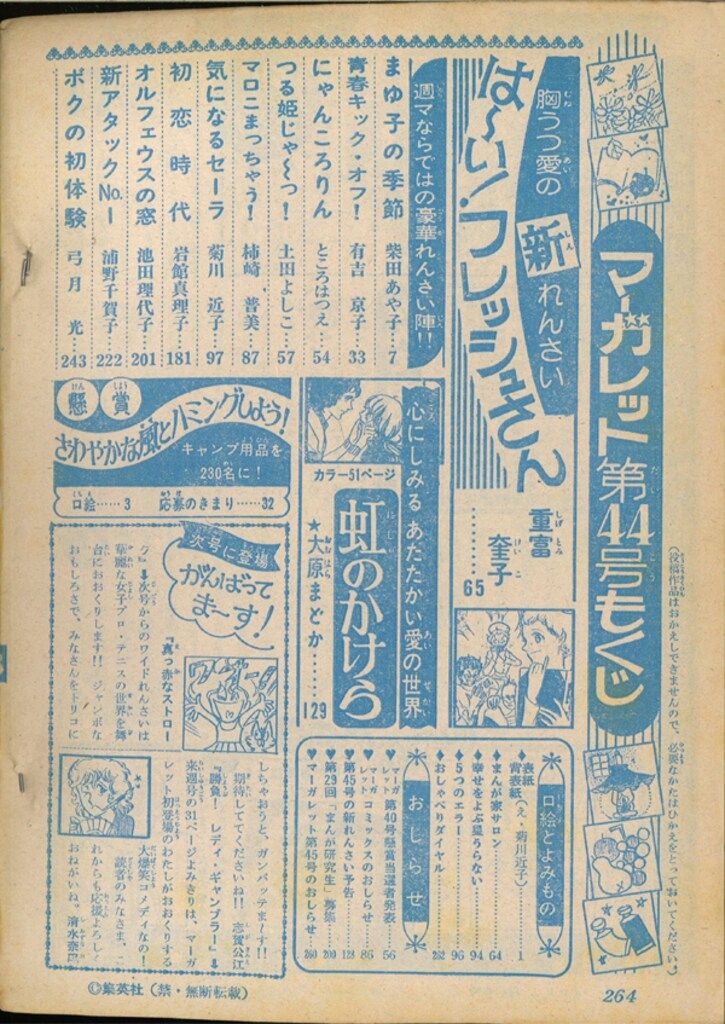 マーガレット第44号もくじ
(投稿作品はおかえしできませんので、必要なかたはひかえをとっておいてください。)
胸うつ愛の新れんさい
は〜い!フレッシュさん
重富奎子……65
週マならではの豪華れんさい陣!!
まゆ子の季節 柴田あや子…7
青春キック・オフ! 有吉京子…33
にゃんころりん ところはつえ…54
つる姫じゃ〜っ! 土田よしこ…57
マロこまっちゃう! 柿崎普美…87
気になるセーラ 菊川近子…97
初恋時代 岩館真理子…181
オルフェウスの窓 池田理代子…201
新アタックNo.1 浦野千賀子…222
ボクの初体験 弓月光…243
心にしみるあたたかい愛の世界
カラー51ページ
虹のかけら
★大原まどか……129
懸賞
さわやかな風とハミングしよう!
キャンプ用品を
230名に!
口絵……3 応募のきまり……32
口絵とよみもの
♦表紙
背表紙(え・菊川近子)……1
♦まんが家サロン……64
♦幸せをよぶ星うらない……94
♦5つのエラー……96
♦おしゃべりダイヤル……262
おしらせ
♥マーガレット第40号懸賞当選者発表……56
♥マーガレットコミックスのおしらせ……86
♥第45号の新れんさい予告……128
♥第29回「まんが研究生」募集……200
♥マーガレット第45号のおしらせ……260
次号に登場
がんばって
ま〜す!
『真っ赤なストロー
ク』⬇次号からのワイドれんさいは
華麗な女子プロ・テニスの世界を舞
台におおくりします!! ジャンボな
おもしろさで、みなさんをトリコに
しちゃおうと、ガンバッテま〜す!!
期待しててくださいね!! 志賀公江
『勝負! レディ・ギャンブラー』⬇
来週号の31ページよみきりは、マーガ
レット初登場のわたしがおおくりする
大爆笑コメディなの!
読者のみなさま、こ
れからも応援よろしく
おねがいね。清水奈
©集英社(禁・無断転載)
264